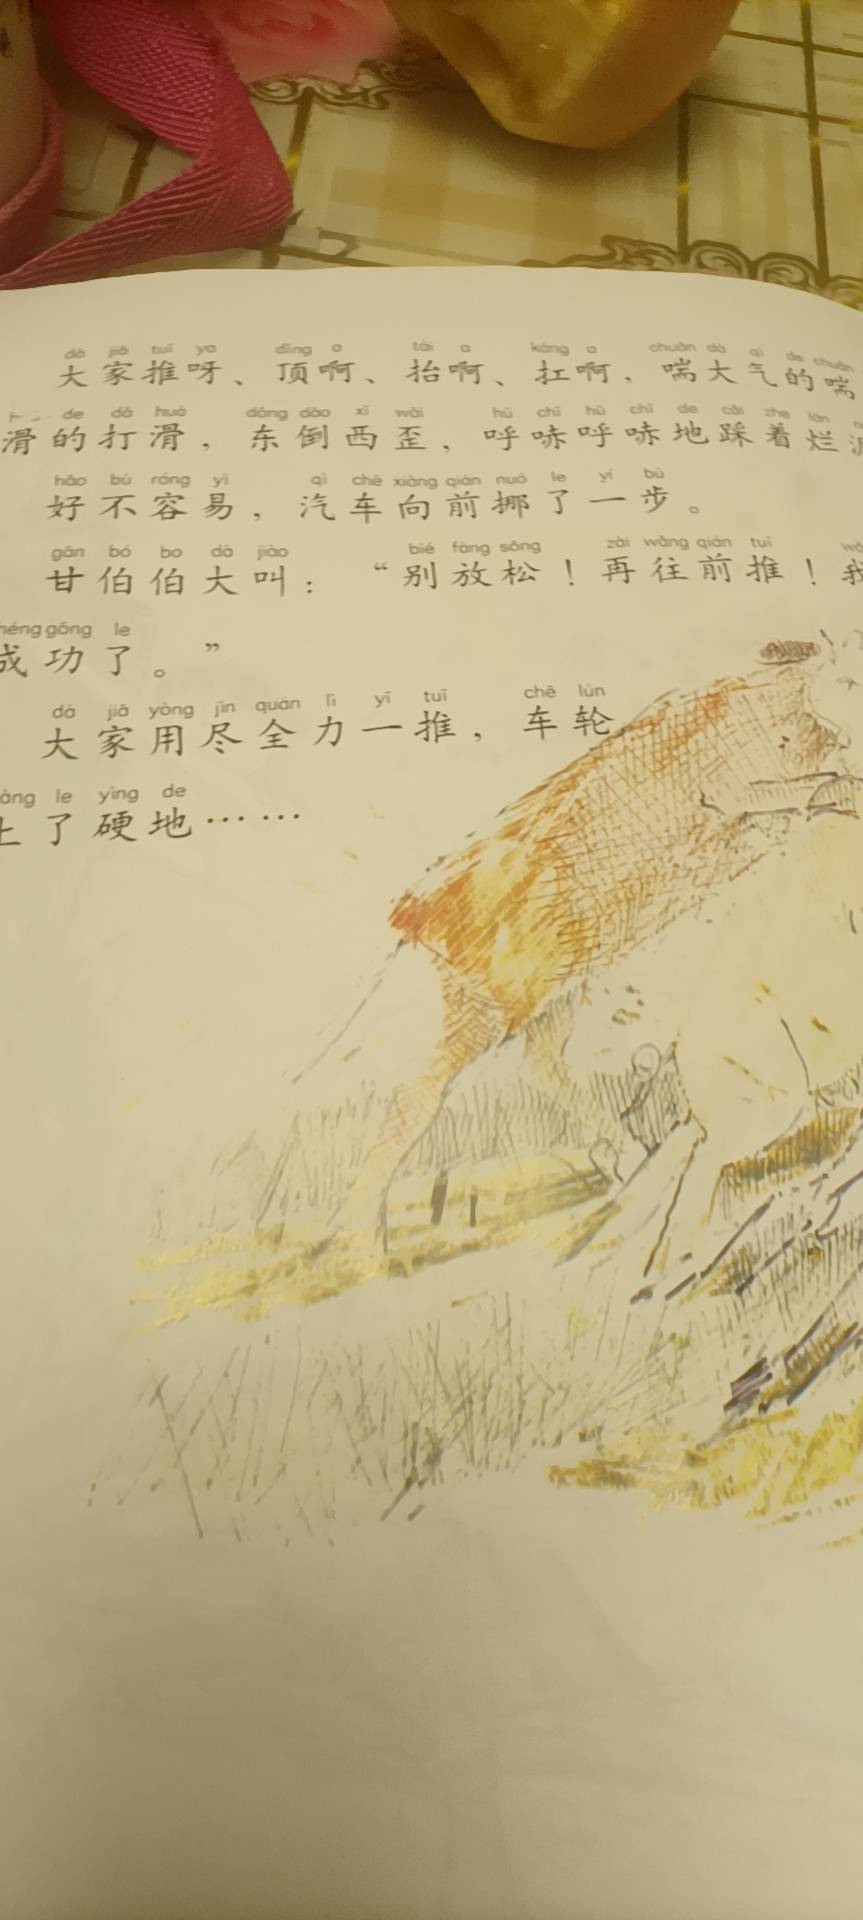 dà jiā tuī ya dǐng a tái a káng a chuǎn dà qì de chuǎn
大家推呀、顶啊、抬啊、扛啊，喘大气的喘
de dǎ huá dōng dǎo xī wāi hū chī hū chī de cǎi zhe làn
滑的打滑，东倒西歪，呼哧呼哧地踩着烂泥
hǎo bù róng yì qì chē xiàng qián nuó le yí bù
好不容易，汽车向前挪了一步。
gān bó bo dà jiào bié fàng sōng zài wǎng qián tuī
甘伯伯大叫：“别放松！再往前推！我
chéng gōng le
成功了。”
dà jiā yòng jìn quán lì yī tuī chē lún
大家用尽全力一推，车轮
le yìng de
上了硬地……